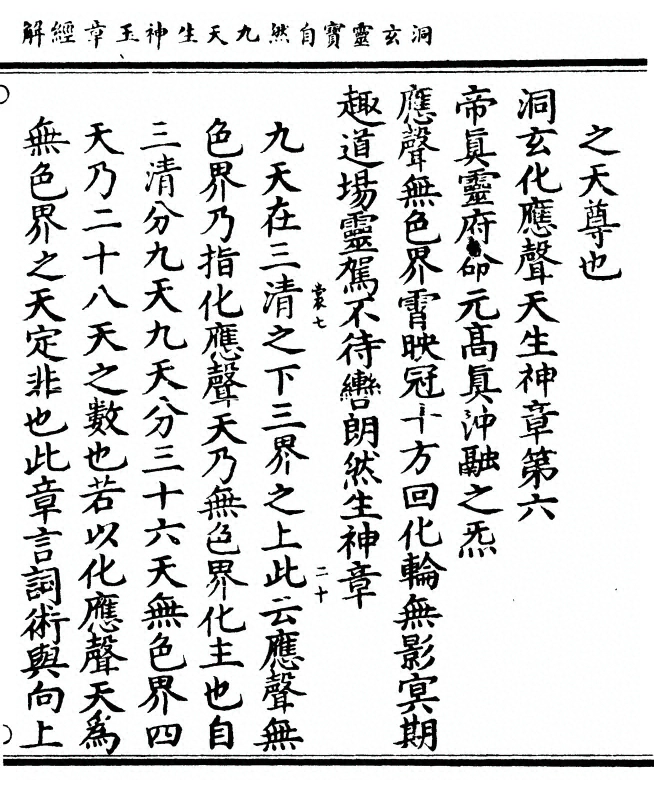 洞玄靈寶自然九天生神玉章經解
之天尊也
洞玄化應聲天生神章第六
帝眞靈府命元高眞沖融之炁
應聲無色界霄映冠十方回化輪無影冥期
趣道場靈駕不待轡朗然生神章
裳七
二十
九天在三清之下三界之上此云應聲無
色界乃指化應聲天乃無色界化主也自
三清分九天九天分三十六天無色界四
天乃二十八天之數也若以化應聲天爲
無色界之天定非也此章言詞術與向上